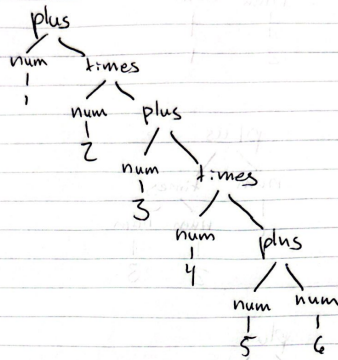 plus
num times
1
num plus
2
num times
3
num plus
4
num num
5 6